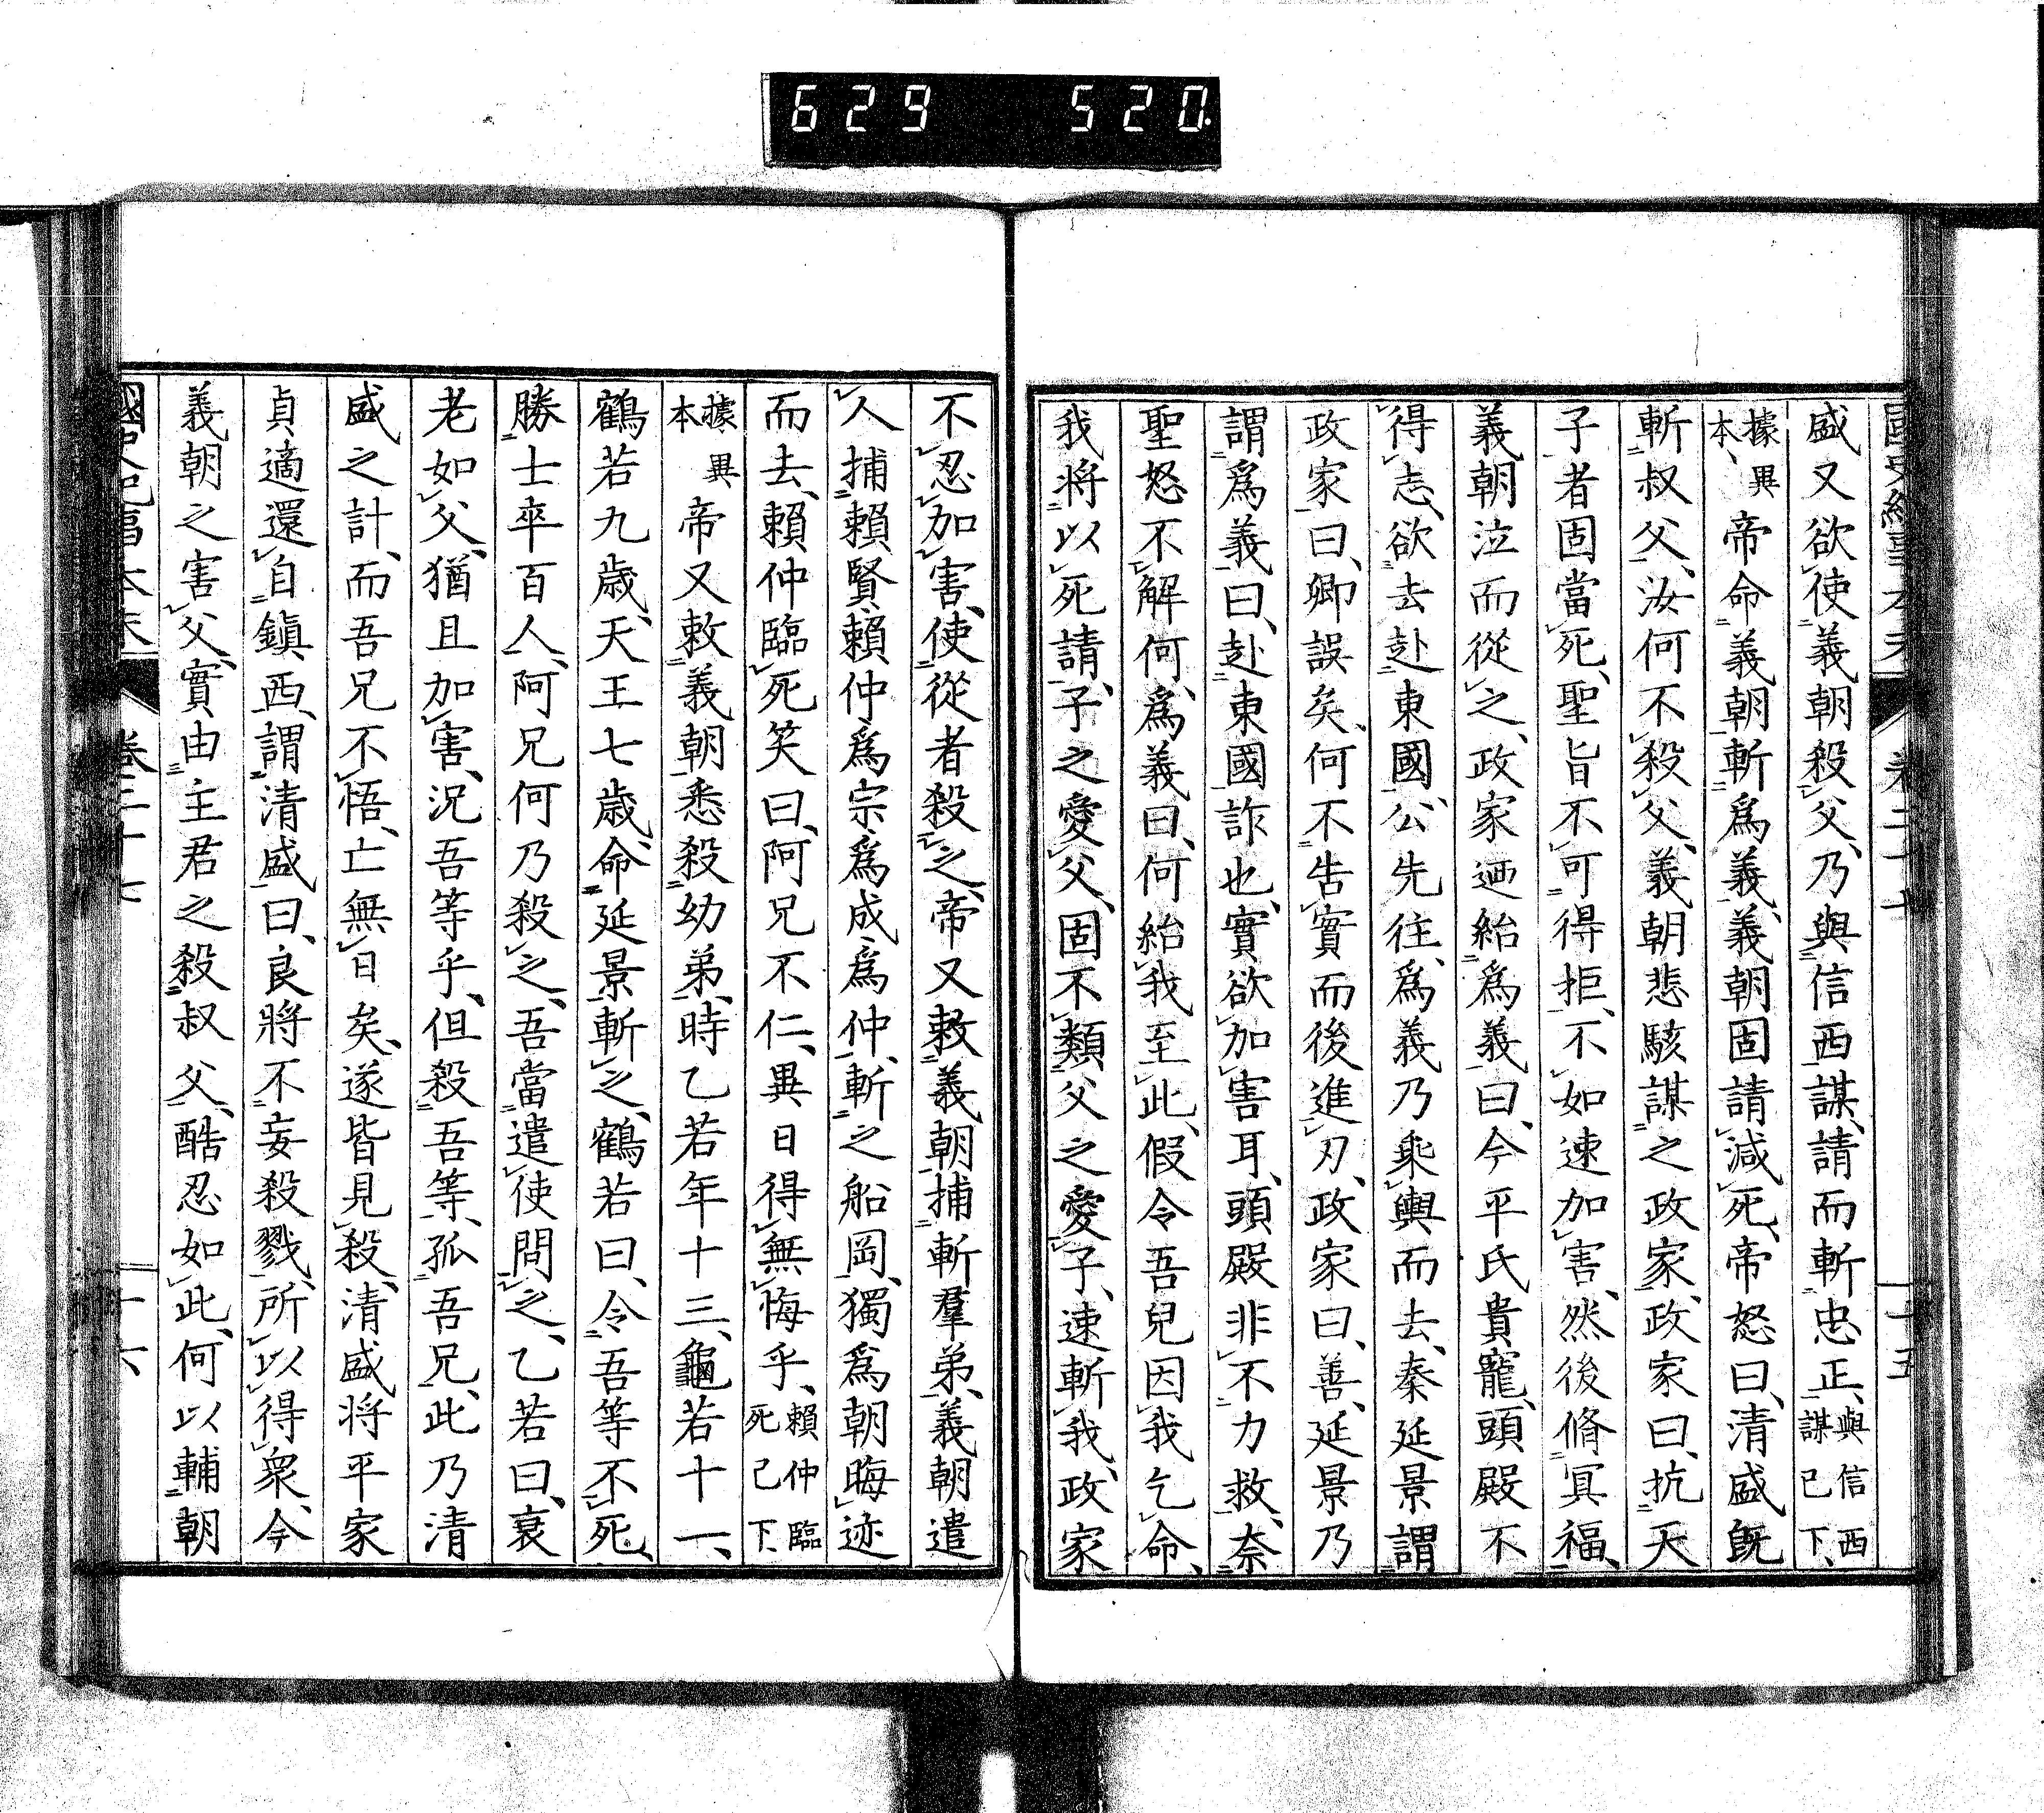 629 520.
國史紀事本末 卷二十七 十五
盛又欲使義朝殺父、乃與信西謀、請而斬忠正、與信西謀已下、
據異本、帝命義朝斬爲義、義朝固請減死、帝怒曰、清盛既
斬叔父、汝何不殺父、義朝悲駭謀之政家、政家曰、抗天
子者固當死、聖旨不可得拒、不如速加害、然後脩冥福、
義朝泣而從之、政家迺紿爲義曰、今平氏貴寵、頭殿不
得志、欲去赴東國、公先往、爲義乃乘輿而去、秦延景謂
政家曰、卿誤矣、何不告實而後進刃、政家曰、善、延景乃
謂爲義曰、赴東國詐也、實欲加害耳、頭殿非不力救、奈
聖怒不解何、爲義曰、何紿我至此、假令吾兒因我乞命、
我將以死請、子之愛父、固不類父之愛子、速斬我、政家
不忍加害、使從者殺之、帝又敕義朝捕斬羣弟、義朝遣
人捕賴賢賴仲爲宗爲成爲仲、斬之船岡、獨爲朝晦迹
而去、賴仲臨死笑曰、阿兄不仁、異日得無悔乎、賴仲臨死已下、
據異本 帝又敕義朝悉殺幼弟、時乙若年十三、龜若十一、
鶴若九歳、天王七歳、命延景斬之、鶴若曰、令吾等不死、
勝士卒百人、阿兄何乃殺之、吾當遣使問之、乙若曰、衰
老如父、猶且加害、況吾等乎、但殺吾等、孤吾兄、此乃清
盛之計、而吾兄不悟、亡無日矣、遂皆見殺、清盛將平家
貞適還自鎭西、謂清盛曰、良將不妄殺戮、所以得衆、今
義朝之害父、實由主君之殺叔父、酷忍如此、何以輔朝
國史紀事本末 卷二十七 十六